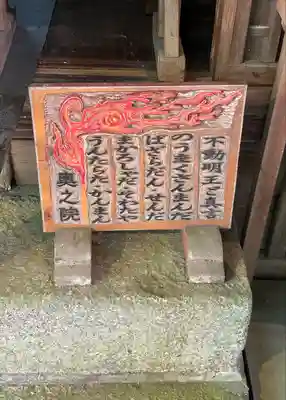 不動明王ご真言
のうまくさんまんだ
ばさらだん せんだ
まかろしゃだ そわたや
うんたらた かんまん
奥之院